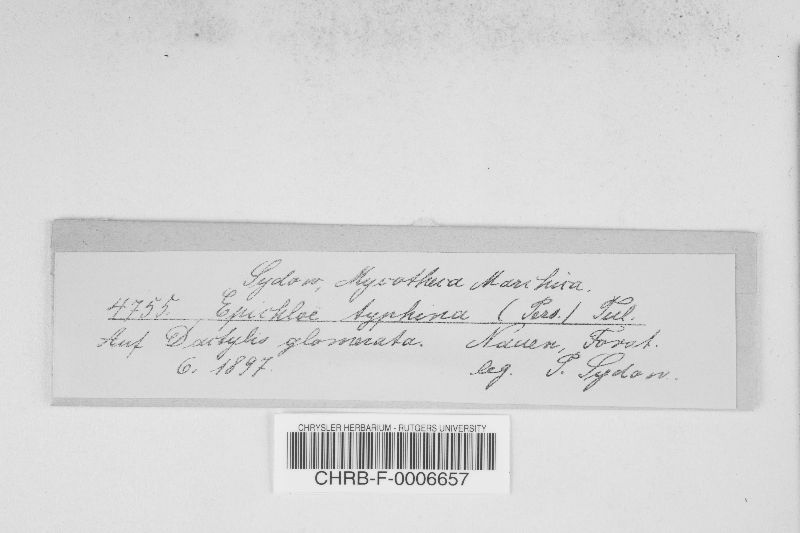 Sydow, Mycotheca Marchica.
4755. Epichloe typhina (Pers.) Tul.
Auf Dactylis glomerata. Nauen, Forst.
6. 1897. leg. P. Sydow.
CHRYSLER HERBARIUM - RUTGERS UNIVERSITY
CHRB-F-0006657